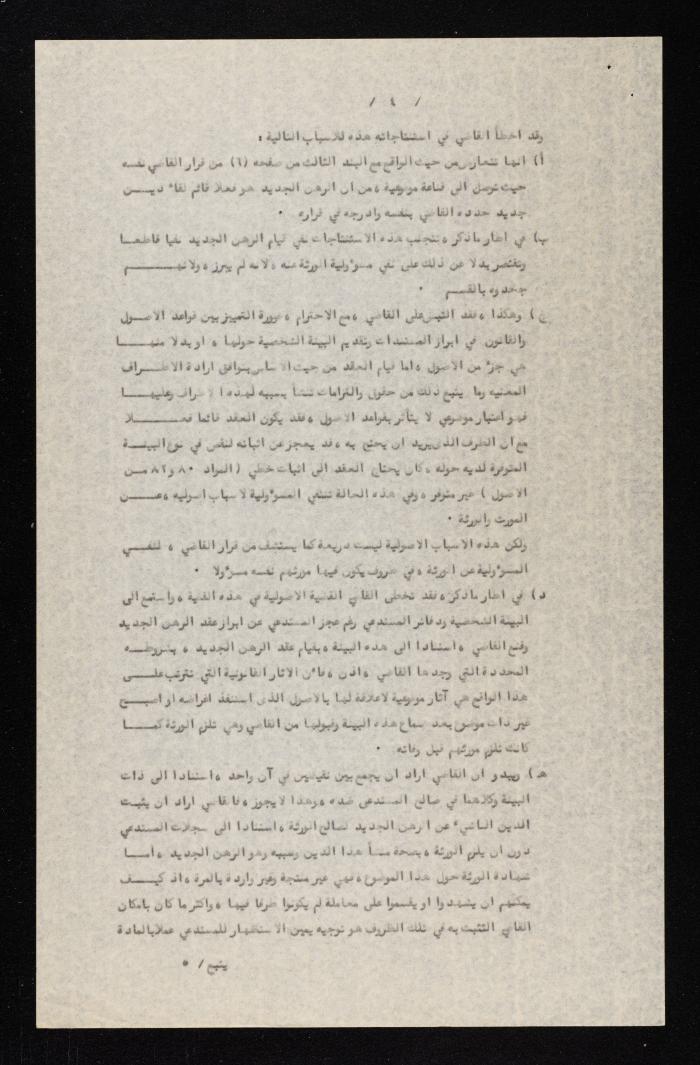 / ٤ /
وقد اخطأ القاضي في استنتاجاته هذه للاسباب التالية :
أ) انها تتعارض من حيث الواقع مع البند الثالث من صفحه (٦) من قرار القاضي نفسه
حيث توصل الى قناعة موضوعية ، من ان الرهن الجديد هو فعلا قائم لقاء ديـــن
جديد حدده القاضي بنفسه وادرجه في قراره .
ب) في اطار ما ذكر ، تتجنب هذه الاستنتاجات نفي قيام الرهن الجديد نفيا قاطعـا
وتقتصر بدلا عن ذلك على نفي مسؤولية الورثة عنه ، لانه لم يبرز ، ولانهـــــم
جحدوه بالقسم .
ج) وهكذا ، فقد التبس على القاضي ، مع الاحترام ، ضرورة التمييز بين قواعد الاصــول
والقانون في ابراز المستندات وتقديم البينة الشخصية حولها ، او بدلا منهـــا
هي جزء من الاصول ، اما قيام العقد من حيث الاساس بتوافق ارادة الاطـــراف
المعنيه وما ينبع ذلك من حقوق والتزامات تنشأ بسببه لهذه الاطراف وعليهـــا
فهو اعتبار موضوعي لا يتأثر بقواعد الاصول ، فقد يكون العقد قائما فعـــــلا
مع ان الطرف الذي يريد ان يحتج به ، قد يعجز عن اثباته لنقص في نوع البينــة
المتوفرة لديه حوله ، كان يحتاج العقد الى اثبات خطي ( المواد ٨٠ و٨٢ مـــن
الاصول ) غير متوفر ، وفي هذه الحالة تنتفي المسؤولية لاسباب اصوليه ، عـــن
المورث والورثة .
ولكن هذه الاسباب الاصولية ليست ذريعة كما يستشف من قرار القاضي ، لنفـــي
المسؤولية عن الورثة ، في ظروف يكون فيها مورثهم نفسه مسؤولا .
د) في اطار ما ذكر ، فقد تخطى القاضي القضية الاصولية في هذه القضية ، واستمع الى
البينة الشخصية ودفاتر المستدعي رغم عجز المستدعي عن ابراز عقد الرهن الجديد
وقنع القاضي ، استنادا الى هذه البينة ، بقيام عقد الرهن الجديد ، بشروطــه
المحددة التي وجدها القاضي ، اذن ، فان الاثار القانونية التي تترتب علـــى
هذا الواقع هي آثار موضوعية لا علاقة لها بالاصول الذي استنفذ اغراضه او اصبــح
غير ذات موضوع بعد سماع هذه البينة وقبولها من القاضي وهي تلزم الورثة كمـــا
كانت تلزم مورثهم قبل وفاته .
هـ) ويبدو ان القاضي اراد ان يجمع بين نقيضين في آن واحد ، استنادا الى ذات
البينة وكلاهما في صالح المستدعى ضده ، وهذا لا يجوز ، فالقاضي اراد ان يثبت
الدين الناشيء عن الرهن الجديد لصالح الورثة ، استنادا الى سجلات المستدعي
دون ان يلزم الورثة ، بصحة منشأ هذا الدين وسببه وهو الرهن الجديد ، أمــا
شهادة الورثة حول هذا الموضوع ، فهي غير منتجة وغير واردة بالمرة ، اذ كيــف
يمكنهم ان يشهدوا او يقسموا على معاملة لم يكونوا طرفا فيها ، واكثر ما كان بامكان
القاضي التثبت به في تلك الظروف هو توجيه يمين الاستظهار للمستدعي عملا بالمادة
يتبع / •